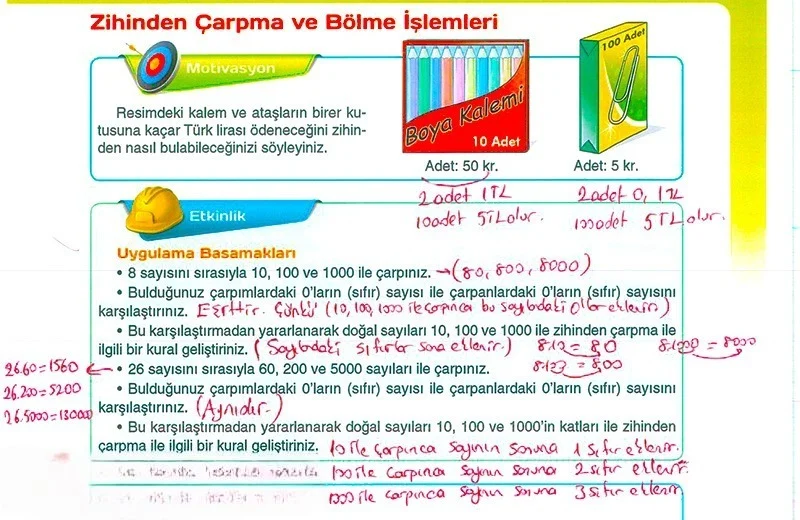 Zihinden Çarpma ve Bölme İşlemleri
Motivasyon
Resimdeki kalem ve ataşların birer ku-
tusuna kaçar Türk lirası ödeneceğini zihin-
den nasıl bulabileceğinizi söyleyiniz.
Boya Kalemi
10 Adet
Adet: 50 kr.
2 adet 1 TL
10 adet 5 TL olur.
100 Adet
Adet: 5 kr.
2 adet 0,1 TL
100 adet 5 TL olur.
Etkinlik
Uygulama Basamakları
• 8 sayısını sırasıyla 10, 100 ve 1000 ile çarpınız. → (80, 800, 8000)
• Bulduğunuz çarpımlardaki 0'ların (sıfır) sayısı ile çarpanlardaki 0'ların (sıfır) sayısını
karşılaştırınız. Eşittir. Çünkü (10, 100, 1000 ile çarpınca bu sayılardaki 0'lar eklenir.)
• Bu karşılaştırmadan yararlanarak doğal sayıları 10, 100 ve 1000 ile zihinden çarpma ile
ilgili bir kural geliştiriniz. (Sayılardaki sıfırlar sona eklenir.) 8.10 = 80 8.1000 = 8000
8.100 = 800
• 26 sayısını sırasıyla 60, 200 ve 5000 sayıları ile çarpınız.
26.60=1560
26.200=5200
26.5000=130000
• Bulduğunuz çarpımlardaki 0'ların (sıfır) sayısı ile çarpanlardaki 0'ların (sıfır) sayısını
karşılaştırınız. (Aynıdır.)
• Bu karşılaştırmadan yararlanarak doğal sayıları 10, 100 ve 1000'in katları ile zihinden
çarpma ile ilgili bir kural geliştiriniz. 10 ile çarpınca sayının sonuna 1 sıfır eklenir.
100 ile çarpınca sayının sonuna 2 sıfır eklenir.
1000 ile çarpınca sayının sonuna 3 sıfır eklenir.